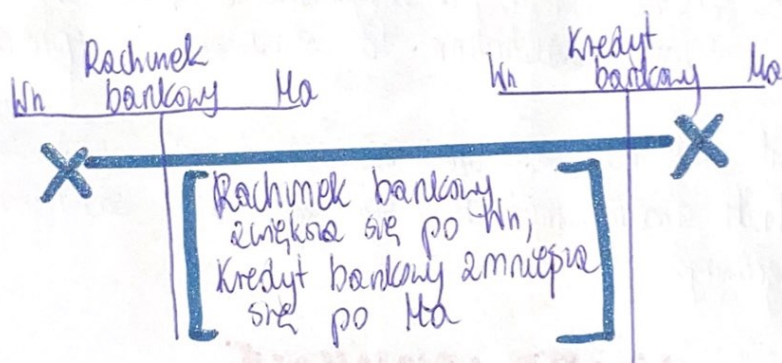 Rachunek
Wn bankowy Ma
Kredyt
Wn bankowy Ma
Rachunek bankowy
zwiększa się po Wn,
Kredyt bankowy zmniejsza
się po Ma